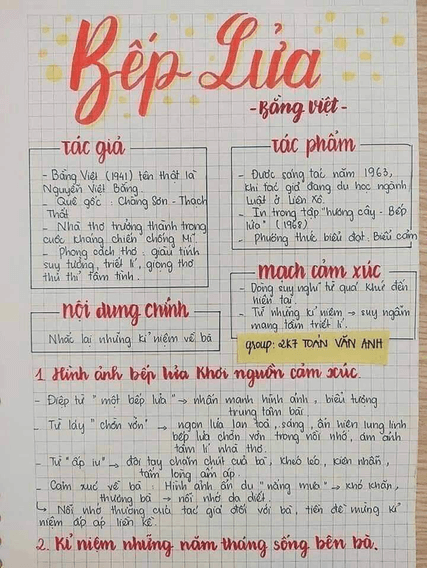 Bếp Lửa
- Bằng Việt -
tác giả
- Bằng Việt (1941) tên thật là
Nguyễn Việt Bằng
- Quê gốc : Chàng Sơn - Thạch
Thất
- Nhà thơ trưởng thành trong
cuộc kháng chiến chống Mĩ.
- Phong cách thơ : giàu tính
suy tưởng, triết lí, giọng thơ
thủ thỉ tâm tình.
tác phẩm
- Được sáng tác năm 1963,
khi tác giả đang du học ngành
Luật ở Liên Xô.
- In trong tập "hương cây - Bếp
lửa" (1968)
- Phương thức biểu đạt: Biểu cảm
mạch cảm xúc
- Dòng suy nghĩ từ quá khứ đến
hiện tại.
- Từ những kỉ niệm → suy ngẫm
mang tầm triết lí.
nội dung chính
Nhắc lại những kỉ niệm về bà
group: 2K7 TOÁN VĂN ANH
1. Hình ảnh bếp lửa khơi nguồn cảm xúc.
- Điệp từ "một bếp lửa" → nhấn mạnh hình ảnh, biểu tượng
trung tâm bài.
- Từ láy "chờn vờn" → ngọn lửa lan toả, sáng, ẩn hiện lung linh
bếp lửa chờn vờn trong nỗi nhớ, ám ảnh
tâm lí nhà thơ.
- Từ "ấp iu" → đôi tay chăm chút của bà, khéo léo, kiên nhẫn,
tấm lòng ấm áp.
- Cảm xúc về bà : Hình ảnh ẩn dụ "nắng mưa" → khó khăn,
thương bà → nỗi nhớ da diết.
↳ Nỗi nhớ thương của tác giả đối với bà, tiền đề những kỉ
niệm ấp áp liền kề.
2. Kỉ niệm những năm tháng sống bên bà.